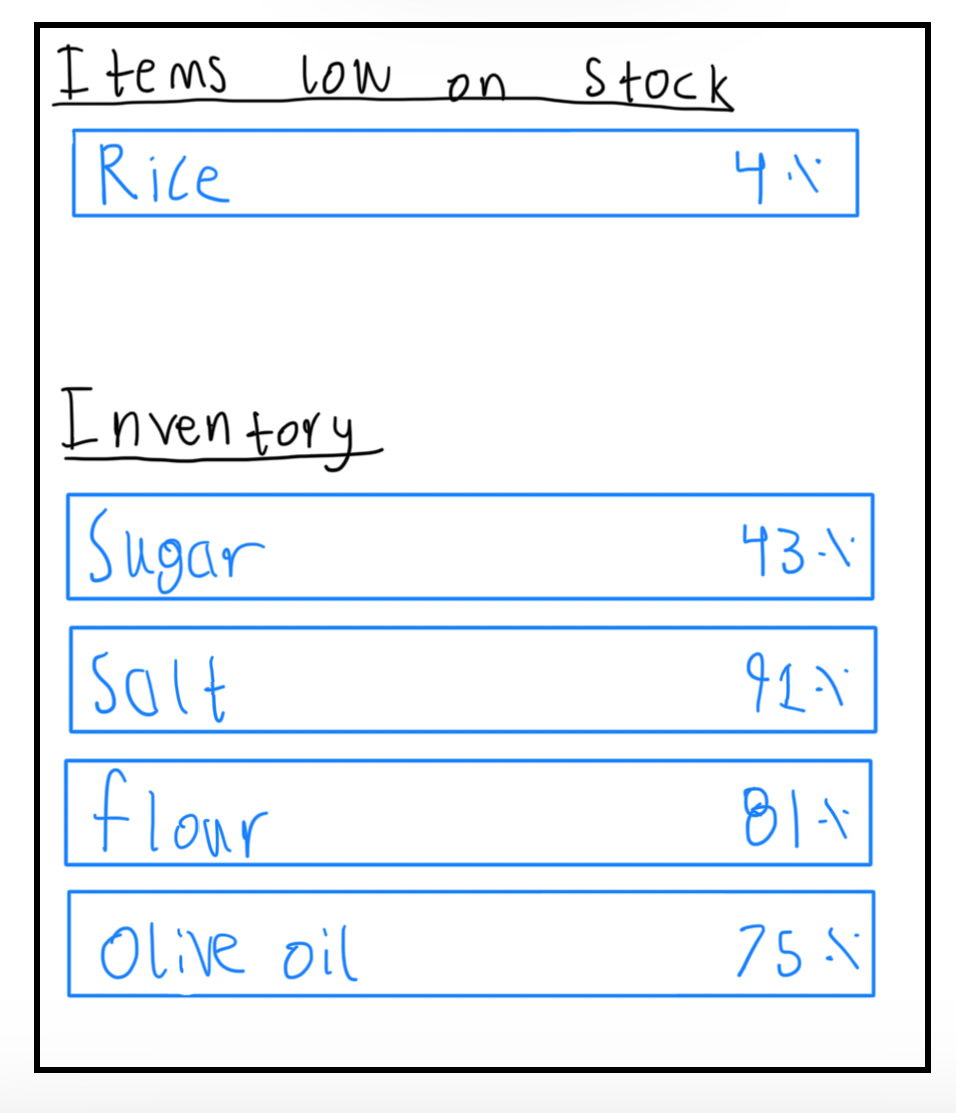 Items low on stock
Rice 4%
Inventory
Sugar 43%
Salt 91%
flour 81%
Olive oil 75%